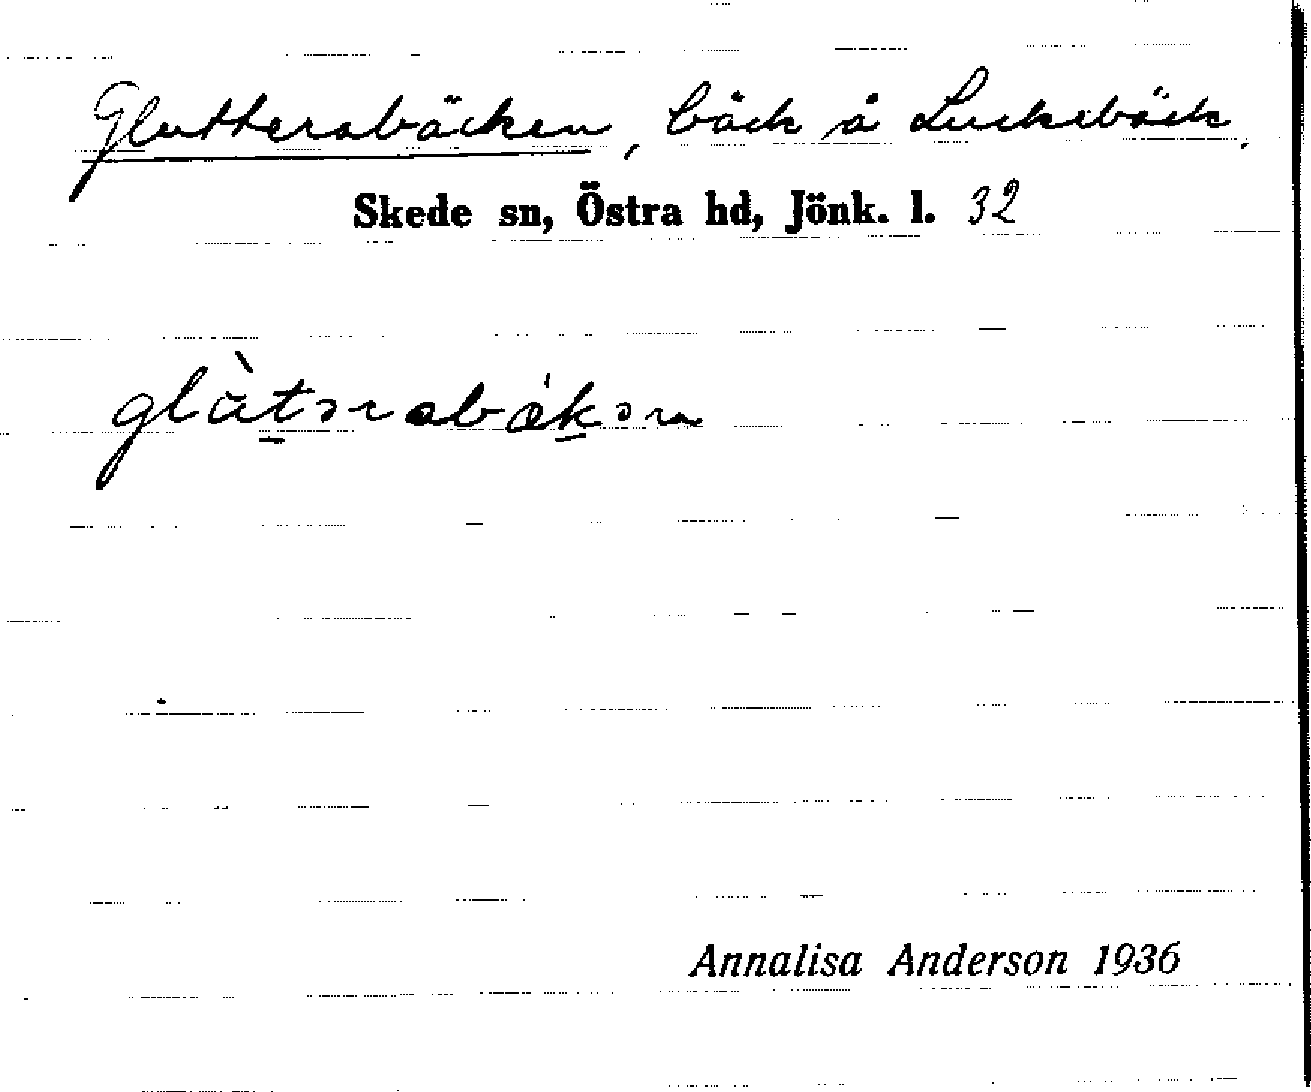 Glutterabäcken, bäck å Luckebäck.
Skede sn, Östra hd, Jönk. l. 32
glùtərabǽkən
Annalisa Anderson 1936